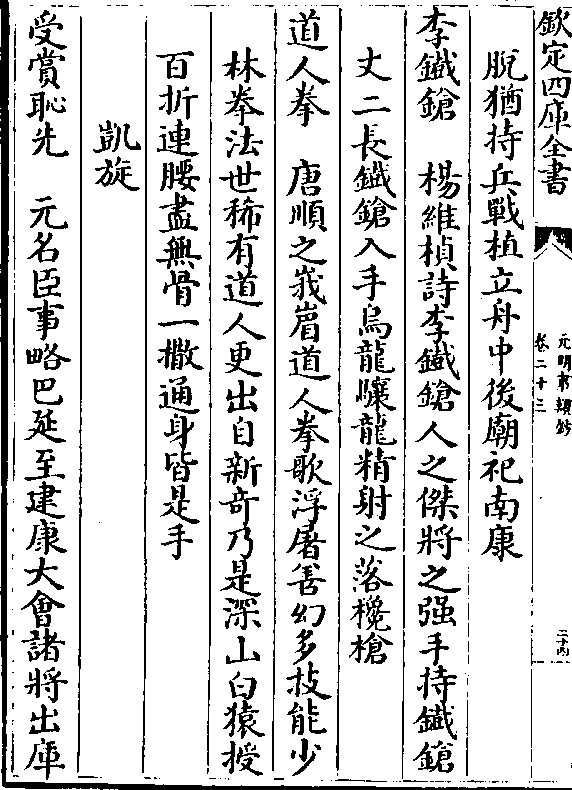 欽定四庫全書
元明事類鈔
卷二十三
二十四
脫猶持兵戰植立舟中後廟祀南康
李鐵鎗　楊維楨詩李鐵鎗人之傑將之强手持鐵鎗
丈二長鐵鎗入手烏龍驤龍精射之落欃槍
道人拳　唐順之峩嵋道人拳歌浮屠善幻多技能少
林拳法世稀有道人更出自新奇乃是深山白猿授
百折連腰盡無骨一撒通身皆是手
凱旋
受賞恥先　元名臣事略巴延至建康大會諸將出庫